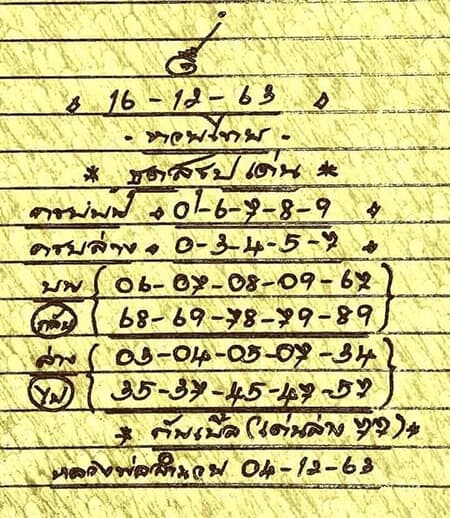 16-12-63
- หวยไทย -
* ชุดสรุปเด่น *
ครบบน 0-6-7-8-9
ครบล่าง 0-3-4-5-7
บน 06-07-08-09-67
กลับ 68-69-78-79-89
ล่าง 03-04-05-07-34
ไป 35-37-45-47-57
* (เด่นล่าง 77) *
หลวงพ่อ 04-12-63